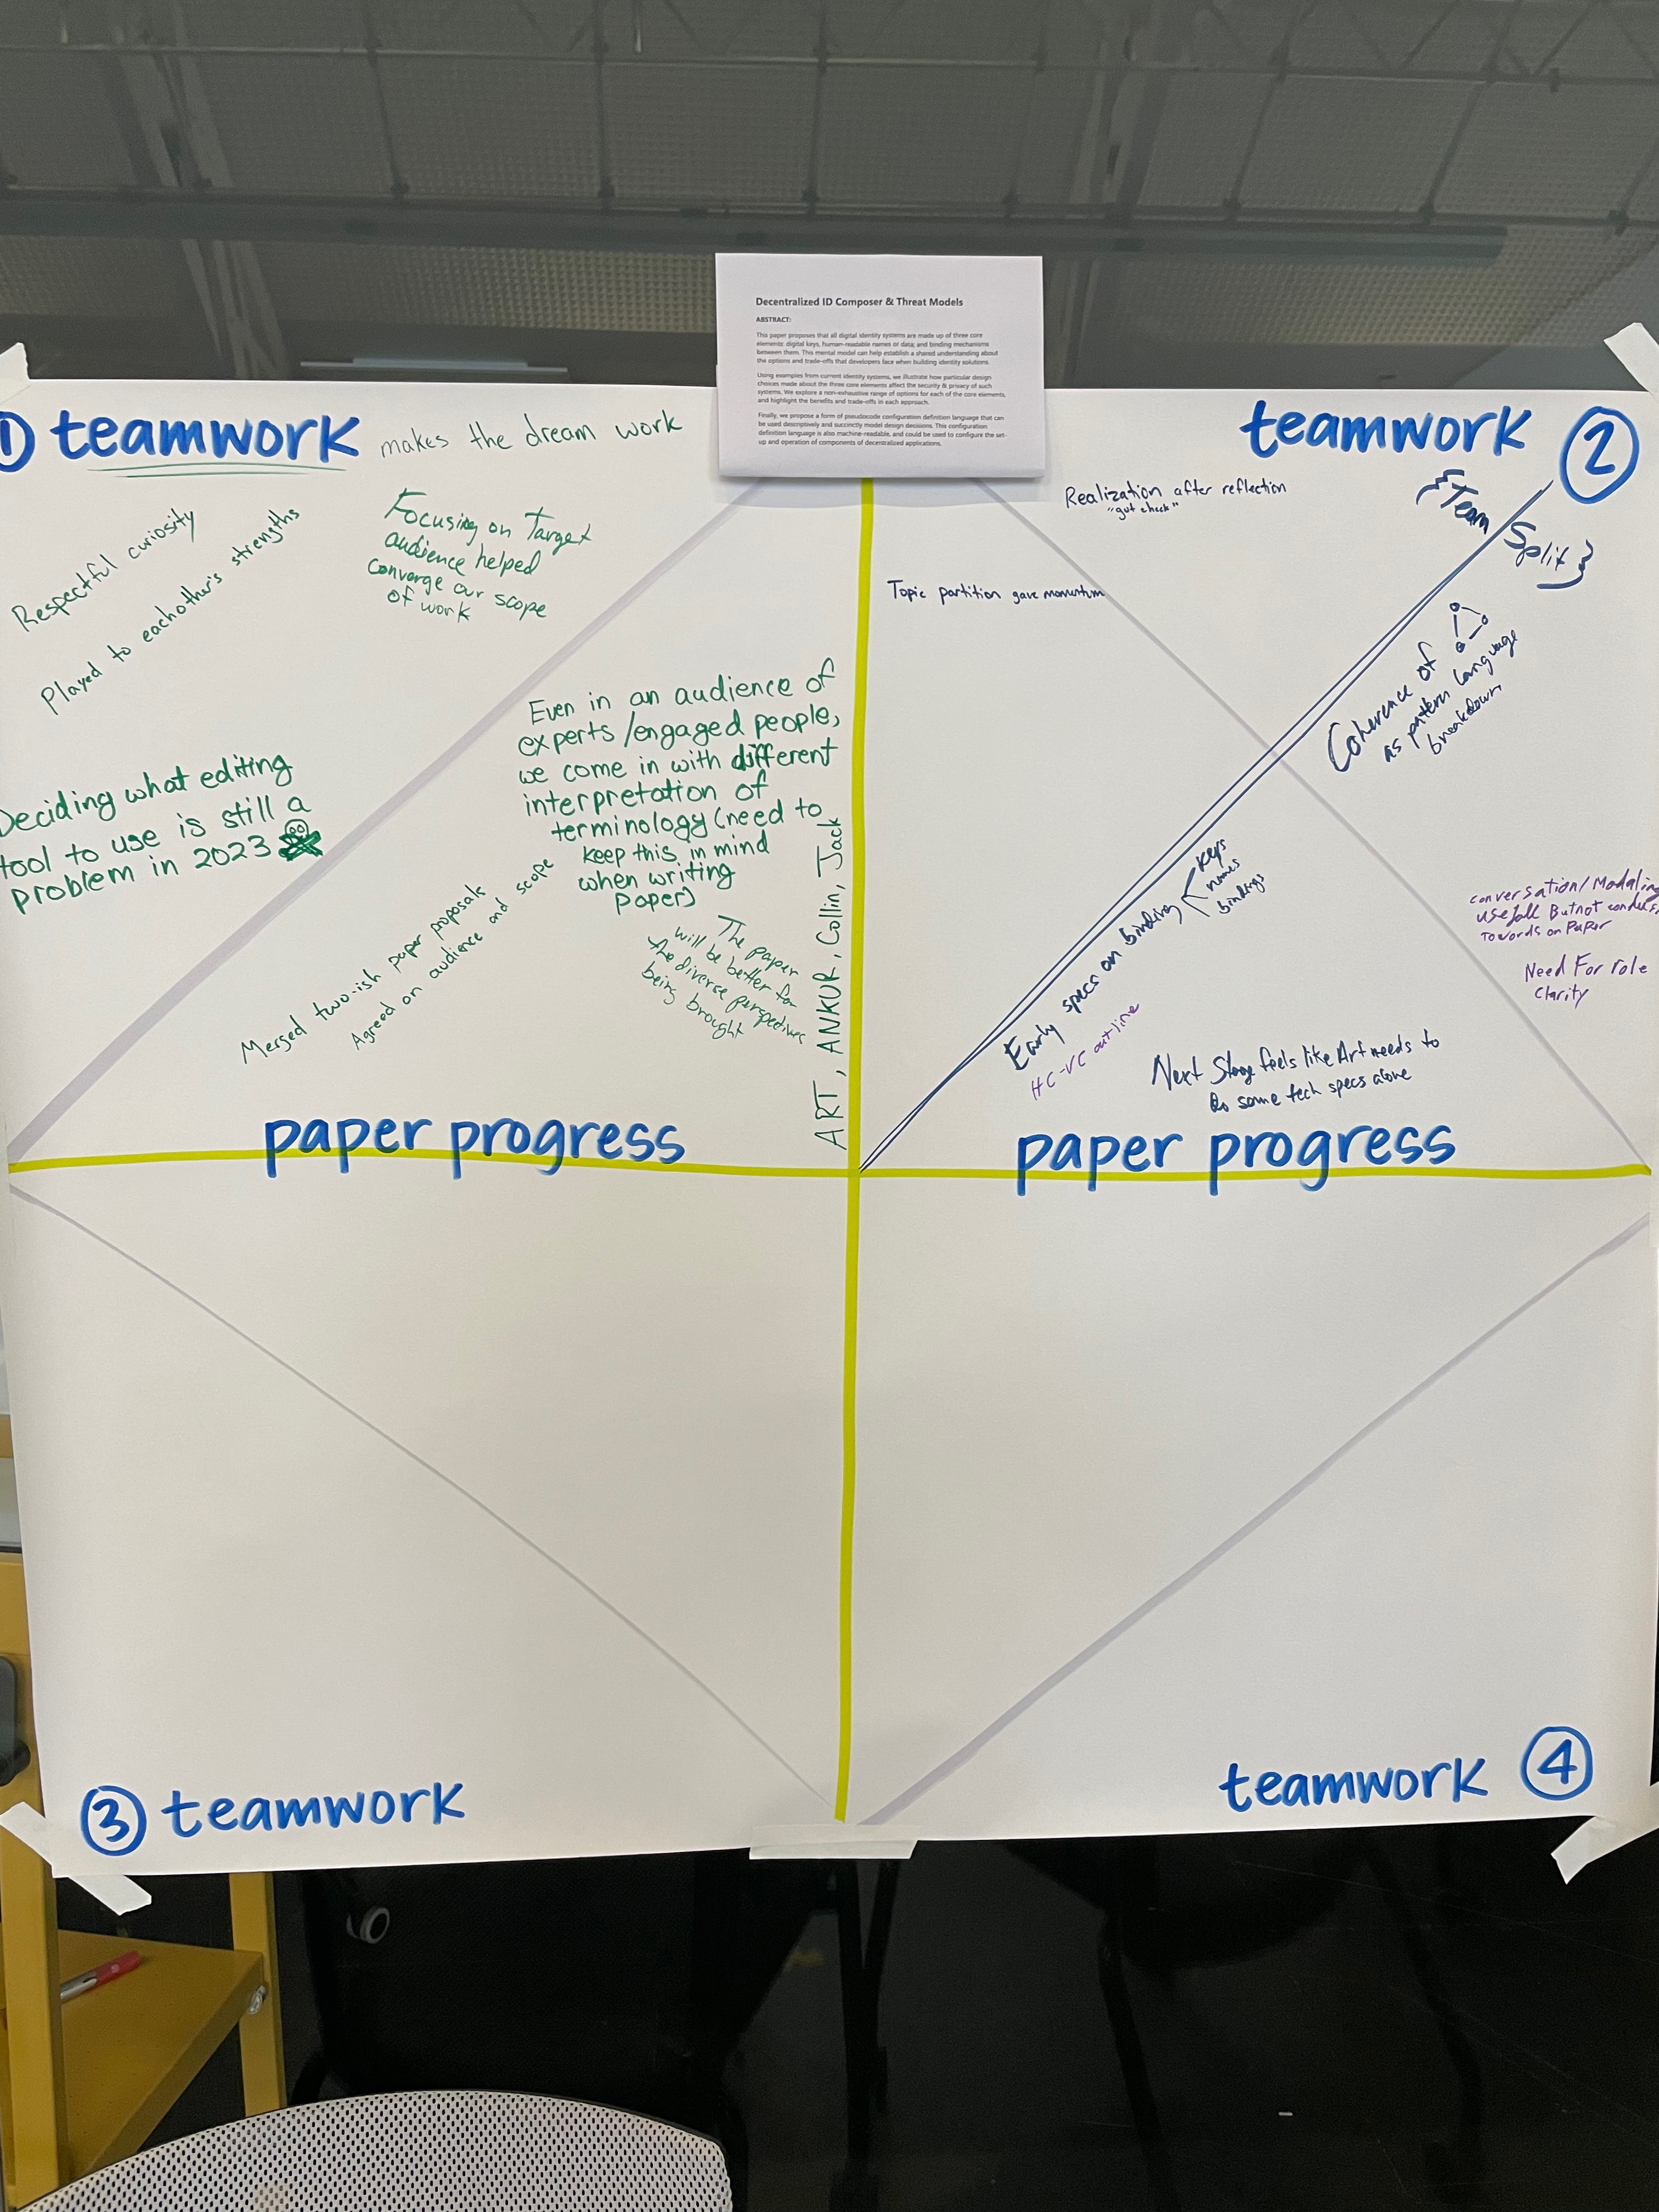 Decentralized ID Composer & Threat Models
ABSTRACT:
This paper proposes that all digital identity systems are made up of three core
elements: digital keys, human-readable names or data; and binding mechanisms
between them. This mental model can help establish a shared understanding about
the options and trade-offs that developers face when building identity solutions.
Using examples from current identity systems, we illustrate how particular design
choices made about the three core elements affect the security & privacy of such
systems. We explore a non-exhaustive range of options for each of the core elements,
and highlight the benefits and trade-offs in each approach.
Finally, we propose a form of pseudocode configuration definition language that can
be used descriptively and succinctly model design decisions. This configuration
definition language is also machine-readable, and could be used to configure the set-
up and operation of components of decentralized applications.
1 teamwork makes the dream work
Respectful curiosity
Played to eachother's strengths
Focusing on Target
audience helped
converge our scope
of work
Deciding what editing
tool to use is still a
problem in 2023
Even in an audience of
experts/engaged people,
we come in with different
interpretation of
terminology (need to
keep this in mind
when writing
paper)
Merged two-ish paper proposals
Agreed on audience and scope
The paper
will be better for
the diverse perspectives
being brought
ART, ANKUR, Collin, Jack
paper progress
teamwork 2
Realization after reflection
"gut check"
{Team
Split}
Topic partition gave momentum
Coherence of
as pattern language
breakdown
Early specs on binding
keys
names
bindings
HC-VC outline
conversation/Modaling
usefull But not
Towords on PaPer
Need For role
Clarity
Next Stage feels like Art needs to
do some tech specs alone
paper progress
3 teamwork
teamwork 4